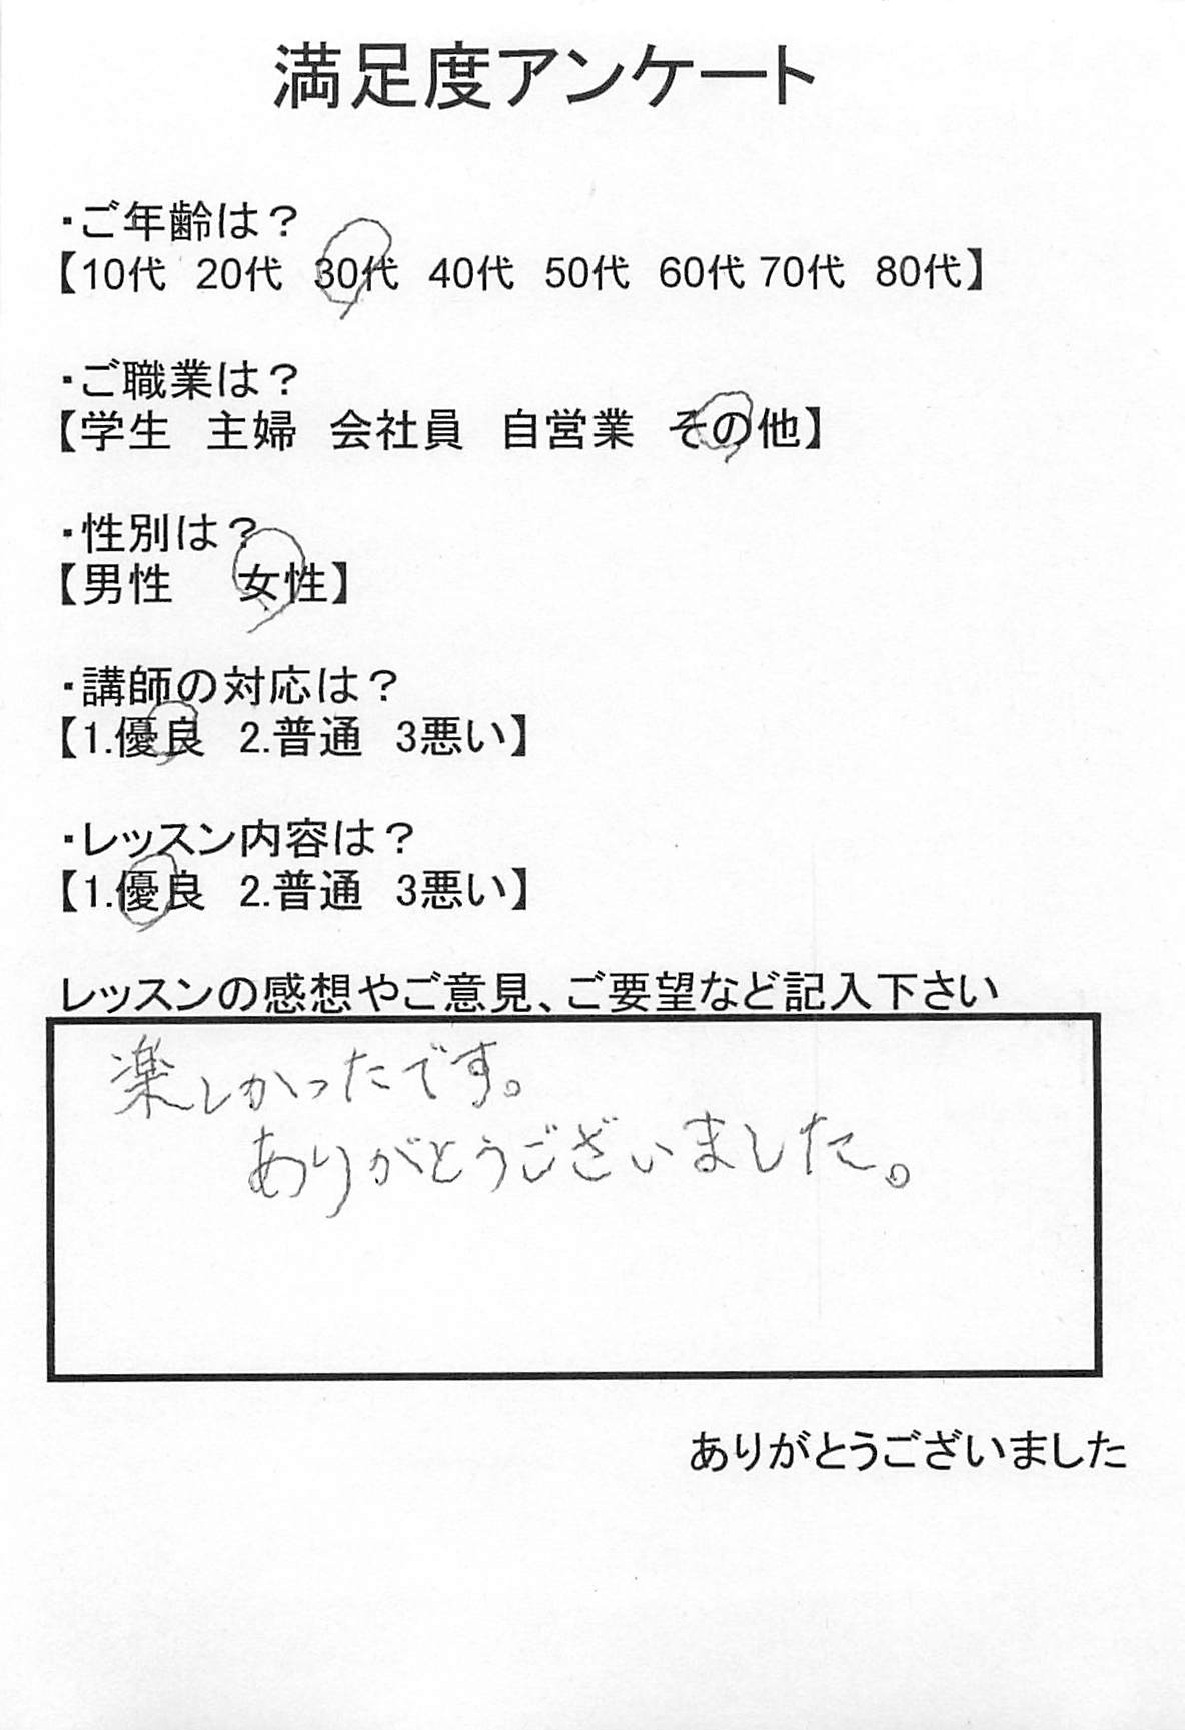 満足度アンケート
・ご年齢は？
【10代 20代 30代 40代 50代 60代 70代 80代】
・ご職業は？
【学生 主婦 会社員 自営業 その他】
・性別は？
【男性 女性】
・講師の対応は？
【1.優良 2.普通 3悪い】
・レッスン内容は？
【1.優良 2.普通 3悪い】
レッスンの感想やご意見、ご要望など記入下さい
楽しかったです。
ありがとうございました。
ありがとうございました